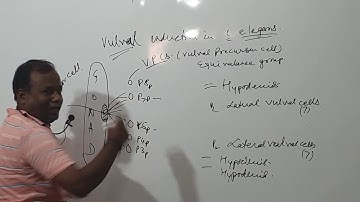 Vulval induction in C elegans
V.P.Cs. (Vulval Precursor Cell)
Equivalence group
G
O
N
A
D
O P8p
O P7p -
O P5p -
O P4p
O P3p
= Hypodermis
Lateral vulval cells
(7)
Lateral vulval cells
(7)
= Hypodermis
= Hypodermis